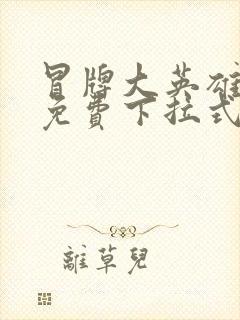 冒牌大英雄
免費下拉式
離草兒